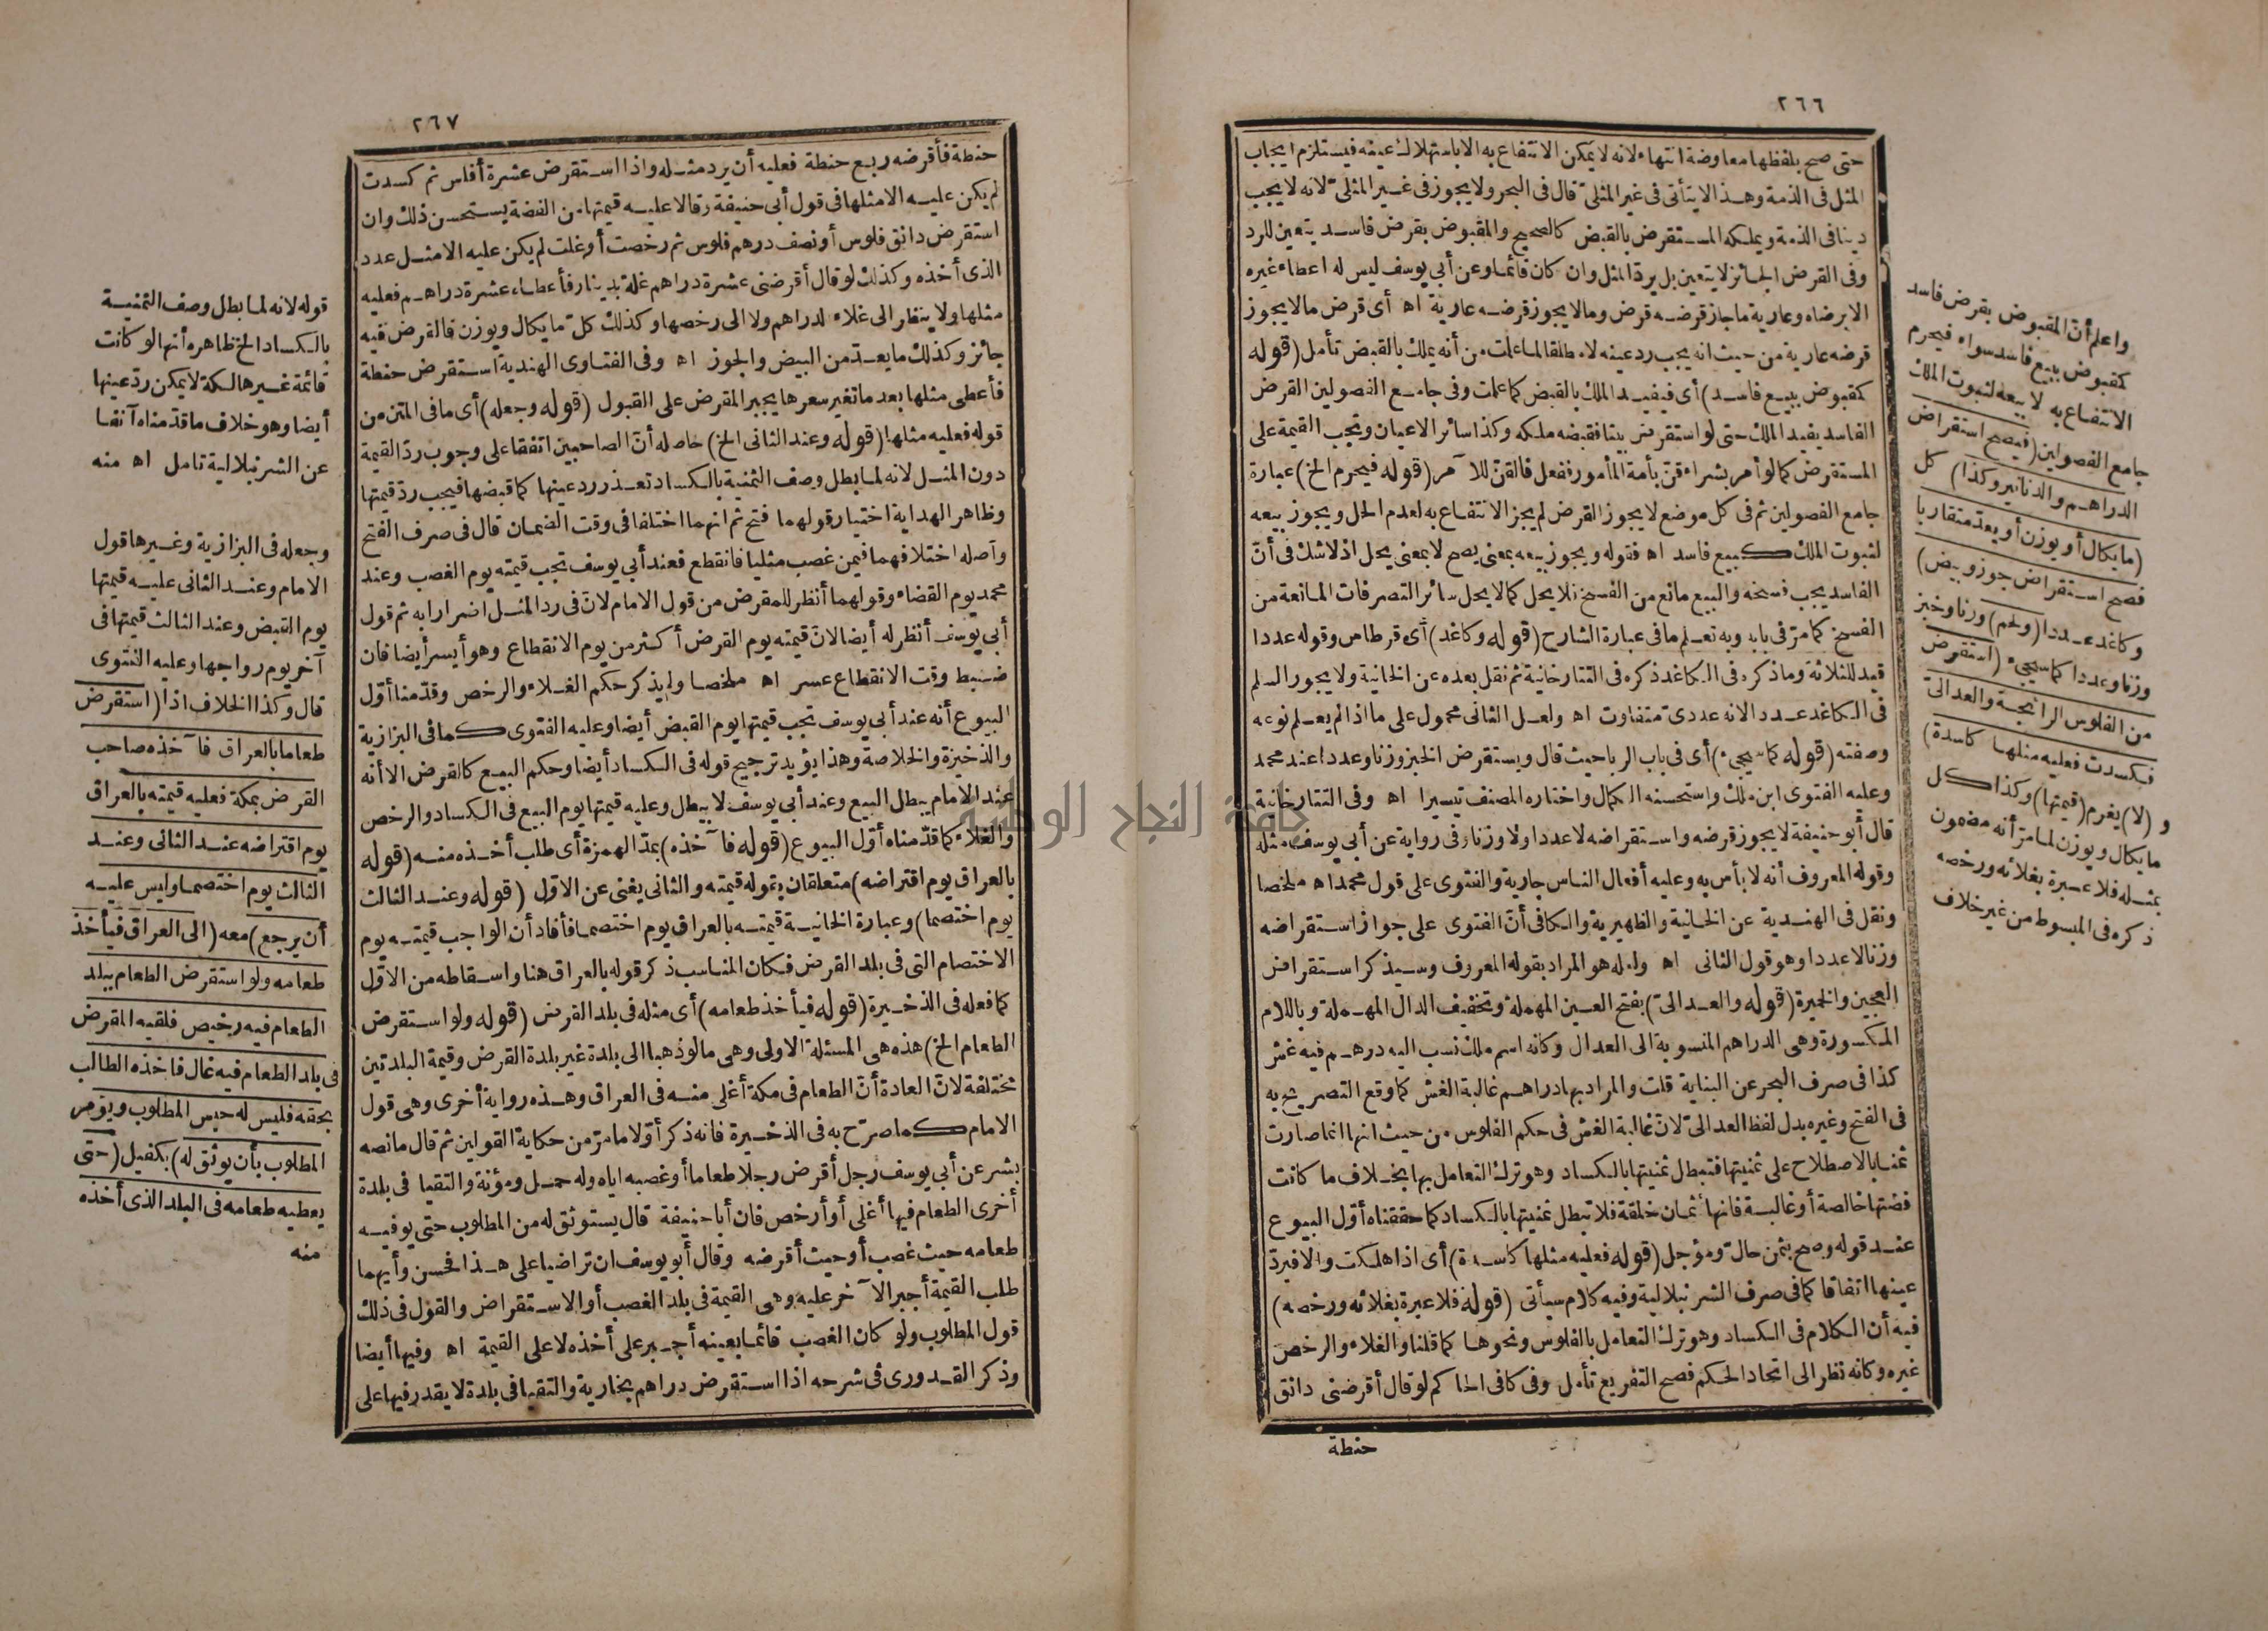 ٢٦٦
حتى صح بلفظها معاوضة انتهاء لانه لا يمكن الانتفاع به الا باستهلاك عينه فيستلزم ايجاب
المثل فى الذمة وهذا لا يتأتى فى غير المثلى قال فى البحر ولا يجوز فى غير المثلى لانه لا يجب
دينا فى الذمة ويملكه المستقرض بالقبض كالصحيح والمقبوض بقرض فاسد يتعين للرد
وفى القرض الجائز لا يتعين بل يرد المثل وان كان قائما وعن أبى يوسف ليس له اعطاء غيره
الا برضاه وعارية ما جاز قرضه قرض وما لا يجوز قرضه عارية اه أى قرض ما لا يجوز
قرضه عارية من حيث انه يجب رد عينه لا مطلقا لما علمت من أنه يملك بالقبض تأمل (قوله
كمقبوض ببيع فاسد) أى فيفيد الملك بالقبض كما علمت وفى جامع الفصولين القرض
الفاسد يفيد الملك حتى لو استقرض بيتا فقبضه ملكه وكذا سائر الاعيان وتجب القيمة على
المستقرض كما لو أمر بشراء قن بأمة المأمور ففعل فالقن للآمر (قوله فيحرم الخ) عبارة
جامع الفصولين ثم فى كل موضع لا يجوز القرض لم يجز الانتفاع به لعدم الحل ويجوز بيعه
لثبوت الملك كبيع فاسد اه فقوله ويجوز بيعه بمعنى يصح لا بمعنى يحل اذ لا شك فى أن
الفاسد يجب فسخه والبيع مانع من الفسخ فلا يحل كما لا يحل سائر التصرفات المانعة من
الفسخ كما مر فى بابه وبه تعلم ما فى عبارة الشارح (قوله وكاغد) أى قرطاس وقوله عددا
قيد للثلاثة وما ذكره فى الكاغد ذكره فى التتارخانية ثم نقل بعده عن الخانية ولا يجوز السلم
فى الكاغد عددا لانه عددى متفاوت اه ولعل الثانى محمول على ما اذا لم يعلم نوعه
وصفته (قوله كما سيجىء) أى فى باب الربا حيث قال ويستقرض الخبز وزنا وعددا عند محمد
وعليه الفتوى ابن ملك واستحسنه الكمال واختاره المصنف تيسيرا اه وفى التتارخانية
قال أبو حنيفة لا يجوز قرضه واستقراضه لا عددا ولا وزنا وفى رواية عن أبى يوسف مثله
وقوله المعروف أنه لا بأس به وعليه أفعال الناس جارية والفتوى على قول محمد اه ملخصا
ونقل فى الهندية عن الخانية والظهيرية والكافى أن الفتوى على جواز استقراضه
وزنا لا عددا وهو قول الثانى اه ولعله هو المراد بقوله المعروف وسيذكر استقراض
العجين والخميرة (قوله والعدالى) بفتح العين المهملة وتخفيف الدال المهملة وباللام
المكسورة وهى الدراهم المنسوبة الى العدال وكأنه اسم ملك نسب اليه درهم فيه غش
كذا فى صرف البحر عن البناية قلت والمراد بها دراهم غالبة الغش كما وقع التصريح به
فى الفتح وغيره بدل لفظ العدالى لان غالبة الغش فى حكم الفلوس من حيث انها انما صارت
ثمنا بالاصطلاح على ثمنيتها فتبطل ثمنيتها بالكساد وهو ترك التعامل بها بخلاف ما كانت
فضتها خالصة أو غالبة فانها أثمان خلقة فلا تبطل ثمنيتها بالكساد كما حققناه أول البيوع
عند قوله وصح بثمن حال ومؤجل (قوله فعليه مثلها كاسدة) أى اذا هلكت والا فيرد
عينها اتفاقا كما فى صرف الشرنبلالية وفيه كلام سيأتى (قوله فلا عبرة بغلائه ورخصه)
فيه أن الكلام فى الكساد وهو ترك التعامل بالفلوس ونحوها كما قلنا والغلاء والرخص
غيره وكأنه نظر الى اتحاد الحكم فصح التفريع تأمل وفى كافى الحاكم لو قال أقرضنى دانق
حنطة
واعلم أن المقبوض بقرض فاسد
كمقبوض ببيع فاسد سواء فيحرم
الانتفاع به لا بيعه لثبوت الملك
جامع الفصولين (فيصح استقراض
الدراهم والدنانير وكذا) كل
(ما يكال أو يوزن أو يعد متقاربا
فصح استقراض جوز وبيض)
وكاغد عددا (ولحم) وزنا وخبز
وزنا وعددا كما سيجىء (استقرض
من الفلوس الرائجة والعدالى
فكسدت فعليه مثلها كاسدة)
و(لا) يغرم (قيمتها) وكذا كل
ما يكال ويوزن لما مر أنه مضمون
بمثله فلا عبرة بغلائه ورخصه
ذكره فى المبسوط من غير خلاف
٢٦٧
حنطة فأقرضه ربع حنطة فعليه أن يرد مثله واذا استقرض عشرة أفلس ثم كسدت
لم يكن عليه الا مثلها فى قول أبى حنيفة وقالا عليه قيمتها من الفضة يستحسن ذلك وان
استقرض دانق فلوس أو نصف درهم فلوس ثم رخصت أو غلت لم يكن عليه الا مثل عدد
الذى أخذه وكذلك لو قال أقرضنى عشرة دراهم غلة بدينار فأعطاه عشرة دراهم فعليه
مثلها ولا ينظر الى غلاء الدراهم ولا الى رخصها وكذلك كل ما يكال ويوزن فالقرض فيه
جائز وكذلك ما يعد من البيض والجوز اه وفى الفتاوى الهندية استقرض حنطة
فأعطى مثلها بعد ما تغير سعرها يجبر المقرض على القبول (قوله وجعله) أى ما فى المتن من
قوله فعليه مثلها (قوله وعند الثانى الخ) حاصله أن الصاحبين اتفقا على وجوب رد القيمة
دون المثل لانه لما بطل وصف الثمنية بالكساد تعذر رد عينها كما قبضها فيجب رد قيمتها
وظاهر الهداية اختيار قولهما فتح ثم انهما اختلفا فى وقت الضمان قال فى صرف الفتح
وأصله اختلافهما فيمن غصب مثليا فانقطع فعند أبى يوسف تجب قيمته يوم الغصب وعند
محمد يوم القضاء وقولهما أنظر للمقرض من قول الامام لان فى رد المثل اضرارا به ثم قول
أبى يوسف أنظر له أيضا لان قيمته يوم القرض أكثر من يوم الانقطاع وهو أيسر أيضا فان
ضبط وقت الانقطاع عسر اه ملخصا ولم يذكر حكم الغلاء والرخص وقدمنا أول
البيوع أنه عند أبى يوسف تجب قيمتها يوم القبض أيضا وعليه الفتوى كما فى البزازية
والذخيرة والخلاصة وهذا يؤيد ترجيح قوله فى الكساد أيضا وحكم البيع كالقرض الا أنه
عند الامام يبطل البيع وعند أبى يوسف لا يبطل وعليه قيمتها يوم البيع فى الكساد والرخص
والغلاء كما قدمناه أول البيوع (قوله فآخذه) بمد الهمزة أى طلب أخذه منه (قوله
بالعراق يوم اقتراضه) متعلقان بقوله قيمته والثانى يغنى عن الاول (قوله وعند الثالث
يوم اختصما) وعبارة الخانية قيمته بالعراق يوم اختصما فأفاد أن الواجب قيمته يوم
الاختصام التى فى بلد القرض فكان المناسب ذكر قوله بالعراق هنا واسقاطه من الاول
كما فعله فى الذخيرة (قوله فيأخذ طعامه) أى مثله فى بلد القرض (قوله ولو استقرض
الطعام الخ) هذه هى المسئلة الاولى وهى ما لو ذهبا الى بلدة غير بلدة القرض وقيمة البلدتين
مختلفة لان العادة أن الطعام فى مكة أغلى منه فى العراق وهذه رواية أخرى وهى قول
الامام كما صرح به فى الذخيرة فانه ذكر أولا ما مر من حكاية القولين ثم قال ما نصه
بشر عن أبى يوسف رجل أقرض رجلا طعاما أو غصبه اياه وله حمل ومؤنة والتقيا فى بلدة
أخرى الطعام فيها أغلى أو أرخص فان أبا حنيفة قال يستوثق له من المطلوب حتى يوفيه
طعامه حيث غصب أو حيث أقرضه وقال أبو يوسف ان تراضيا على هذا فحسن وأيهما
طلب القيمة أجبر الآخر عليه وهى القيمة فى بلد الغصب أو الاستقراض والقول فى ذلك
قول المطلوب ولو كان الغصب قائما بعينه أجبر على أخذه لا على القيمة اه وفيها أيضا
وذكر القدورى فى شرحه اذا استقرض دراهم بخارية والتقيا فى بلدة لا يقدر فيها على
قوله لانه لما بطل وصف الثمنية
بالكساد الخ ظاهره أنها لو كانت
قائمة غير هالكة لا يمكن رد عينها
أيضا وهو خلاف ما قدمناه آنفا
عن الشرنبلالية تامل اه منه
وجعله فى البزازية وغيرها قول
الامام وعند الثانى عليه قيمتها
يوم القبض وعند الثالث قيمتها فى
آخر يوم رواجها وعليه الفتوى
قال وكذا الخلاف اذا (استقرض
طعاما بالعراق فآخذه صاحب
القرض بمكة فعليه قيمته بالعراق
يوم اقتراضه عند الثانى وعند
الثالث يوم اختصما وليس عليه
أن يرجع) معه (الى العراق فيأخذ
طعامه ولو استقرض الطعام ببلد
الطعام فيه رخيص فلقيه المقرض
فى بلد الطعام فيه غال فاخذه الطالب
بحقه فليس له حبس المطلوب ويؤمر
المطلوب بأن يوثق له) بكفيل (حتى
يعطيه طعامه فى البلد الذى أخذه
منه
جامعة النجاح الوطنية